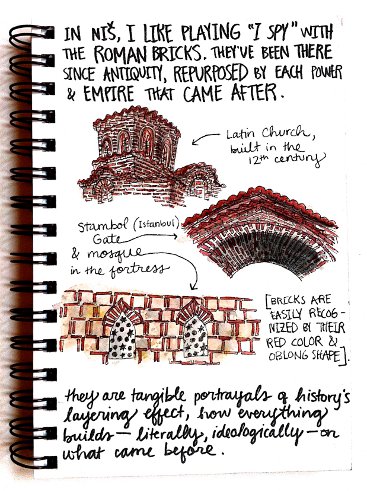 IN NIŠ, I LIKE PLAYING "I SPY" WITH
THE ROMAN BRICKS. THEY'VE BEEN THERE
SINCE ANTIQUITY, REPURPOSED BY EACH POWER
& EMPIRE THAT CAME AFTER.
Latin Church,
built in the
12th century
Stambol (Istanbul)
Gate
& mosque
in the fortress
[BRICKS ARE
EASILY RECOG-
NIZED BY THEIR
RED COLOR &
OBLONG SHAPE].
they are tangible portrayals of history's
layering effect, how everything
builds — literally, ideologically — on
what came before.